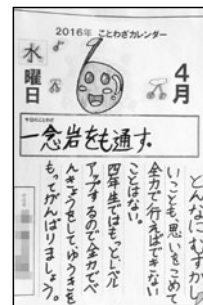 2016年 ことわざカレンダー
水曜日
6
4月
今日のことわざ
一念岩をも通す.
どんなにむずかし
いことも、思いをこめて
全力で行えばできない
ことはない。
四年生ではもっとレベル
アップするので全力でべ
んきょうをして、ゆうきを
もってがんばりましょう。